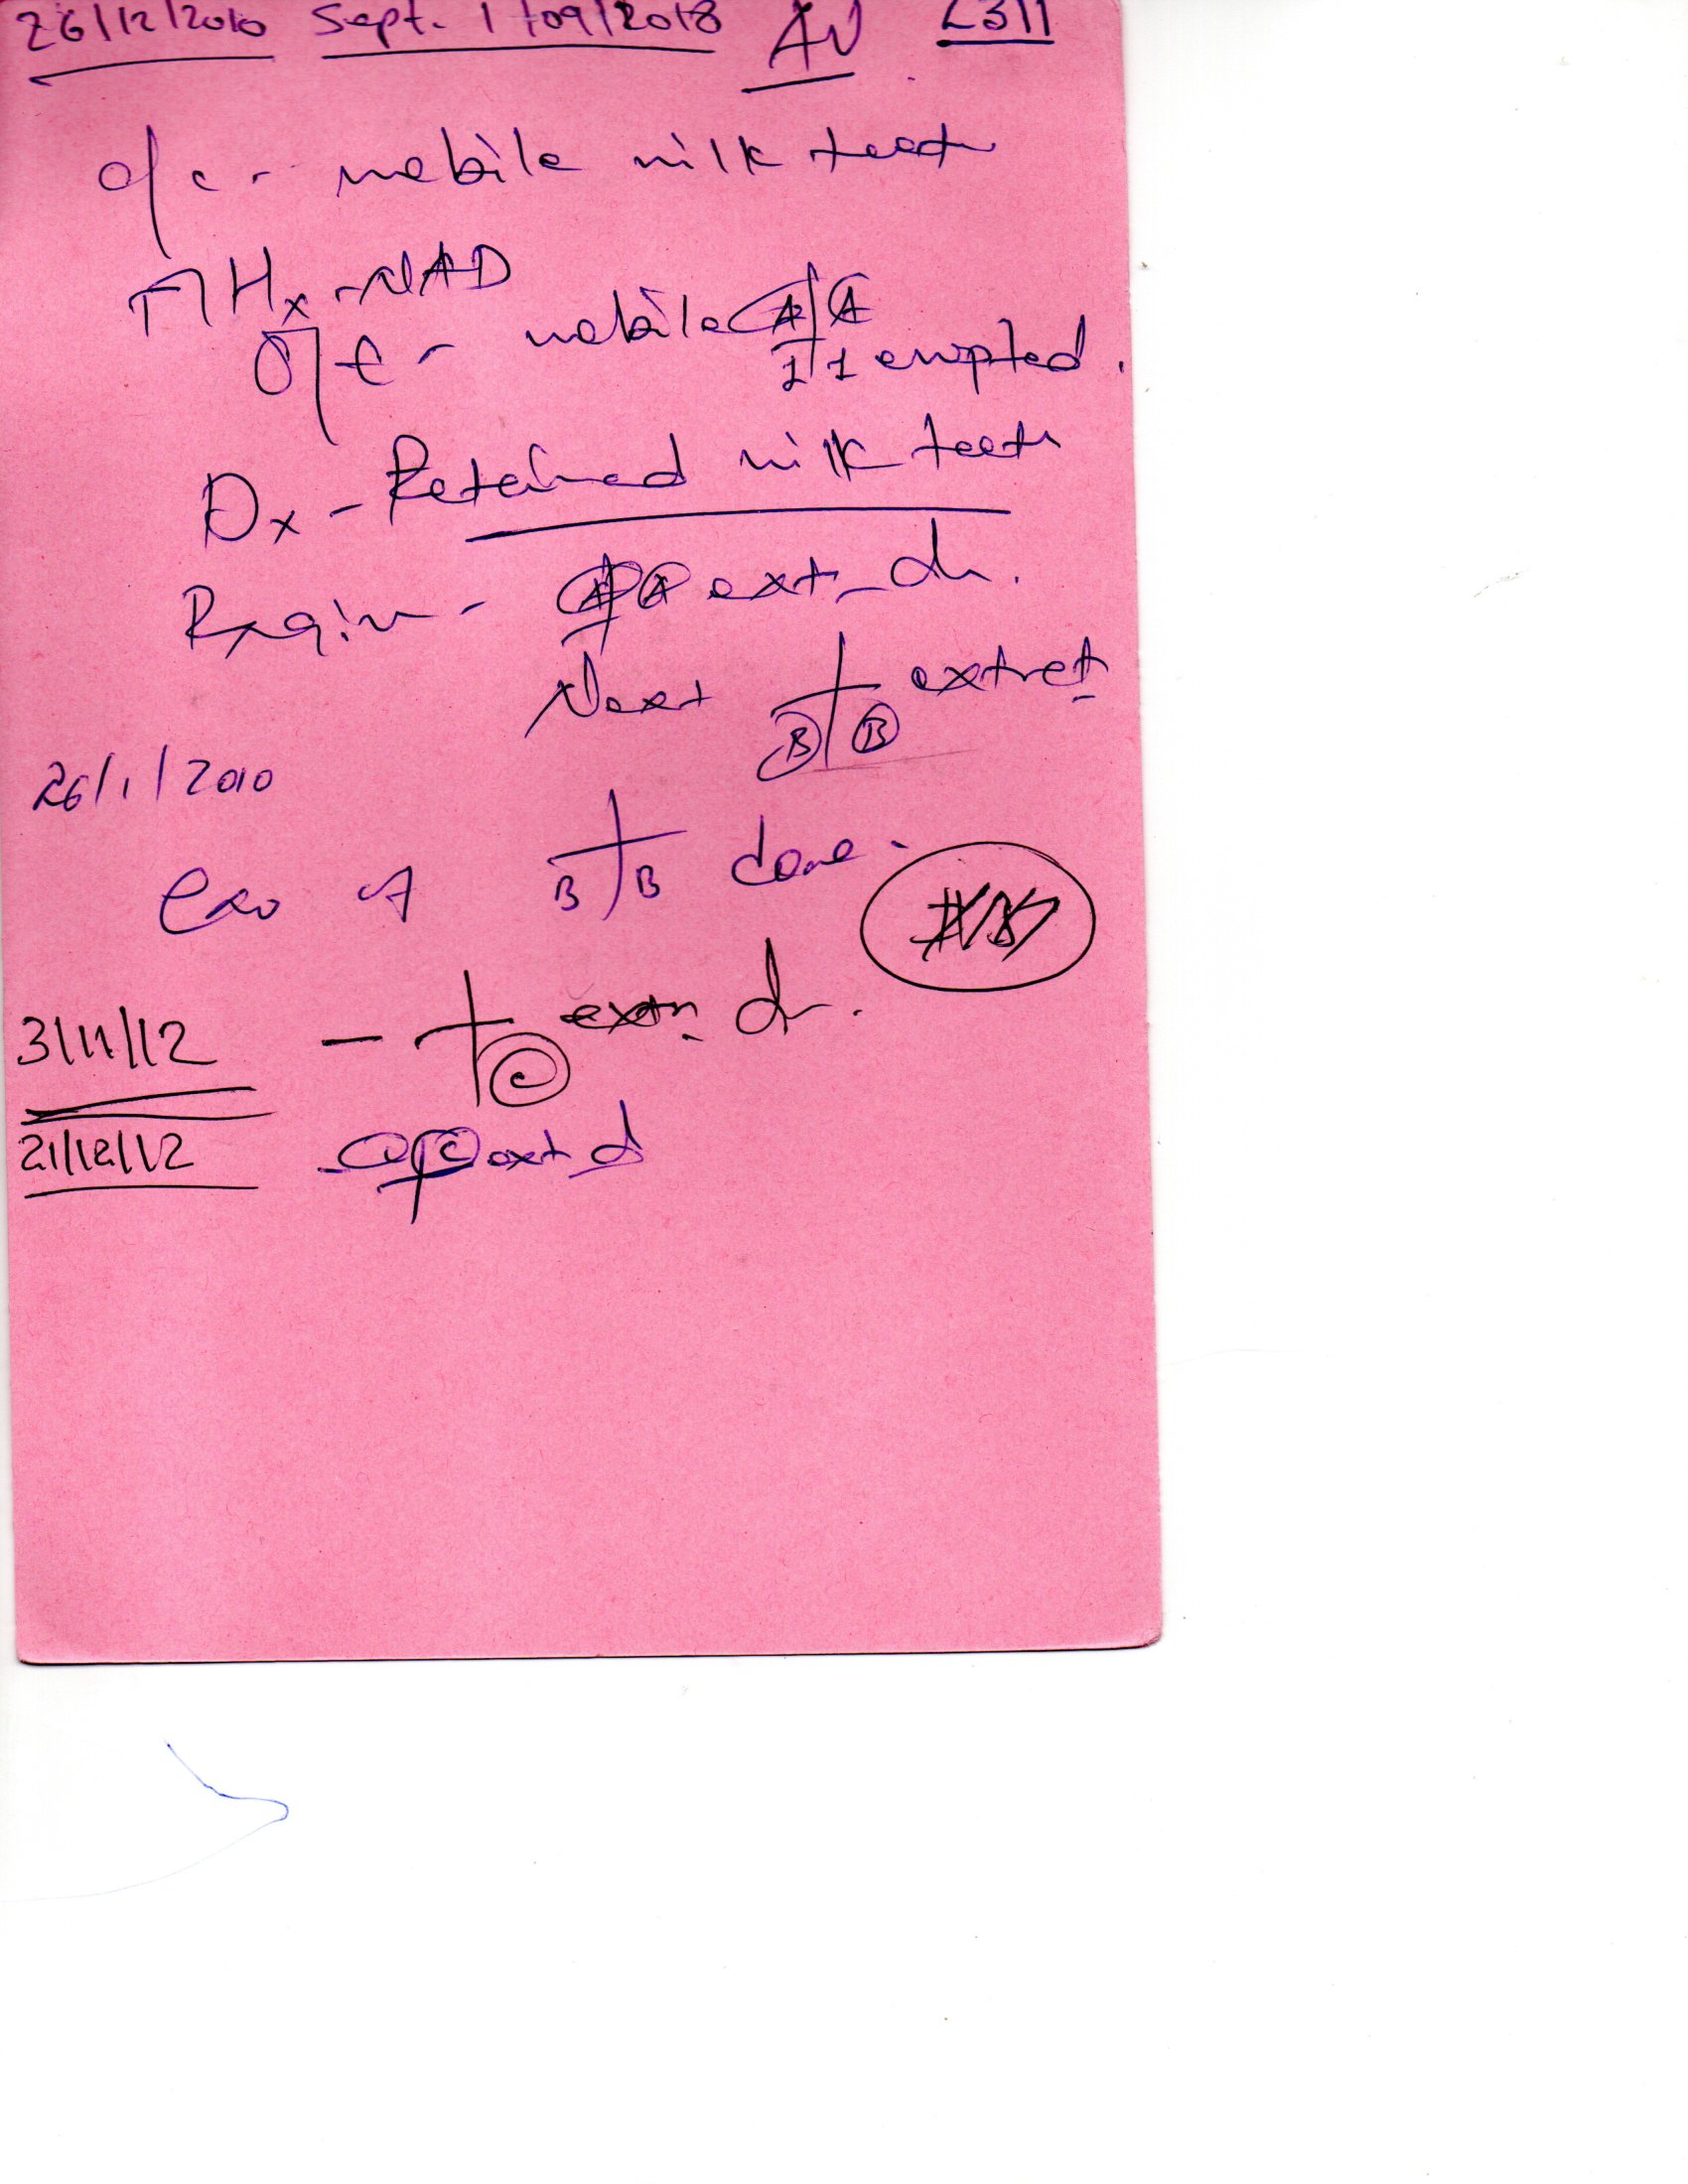 26/12/2010 Sept. 1/09/2018 AN 2311
c/c - mobile milk teeth
MHx - NAD
O/e - mobile A|A
1|1 erupted.
Dx - Retained milk teeth
A|A ext dn.
Next B|B extract
26/1/2010
exo of B|B done.
3/11/12 - C extn dn.
21/12/12 - C ext d